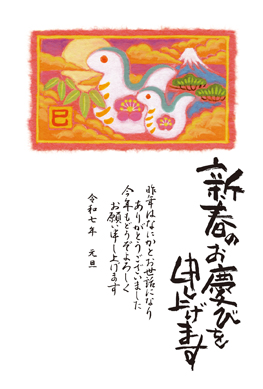 巳
新春の
お慶びを
申し上げます
昨年はなにかとお世話になり
ありがとうございました
今年もどうぞよろしく
お願い申し上げます
令和七年 元旦